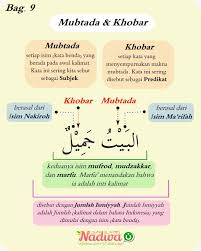 Bag. 9
Mubtada & Khobar
Mubtada
setiap isim (kata benda) yang
berada pada awal kalimat.
Kata ini sering kita sebut
sebagai Subjek.
Khobar
setiap kata yang
menyempurnakan makna
mubtada. Kata ini sering
disebut sebagai Predikat
berasal dari
isim Nakiroh
Khobar
Mubtada
berasal dari
isim Ma'rifah
الْبَيْتُ جَمِيْلٌ
keduanya isim mufrod, mudzakkar,
dan marfu'. Marfu' menandakan bahwa
ia adalah inti kalimat
disebut dengan Jumlah Ismiyyah. Jumlah Ismiyyah
adalah Jumlah kalimat dalam bahasa Indonesia, yang
dimulai dengan isim (kata benda).
Nadwa